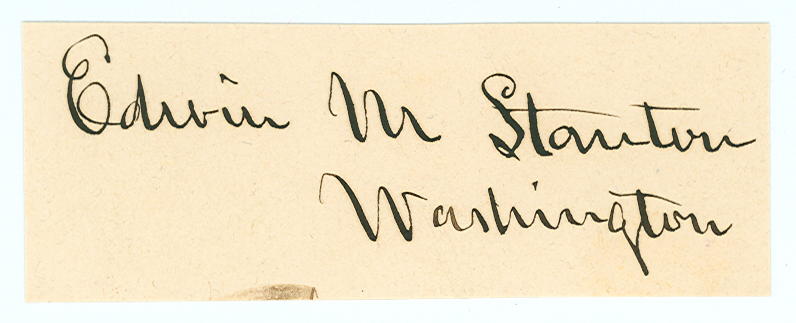 Edwin M Stanton
Washington